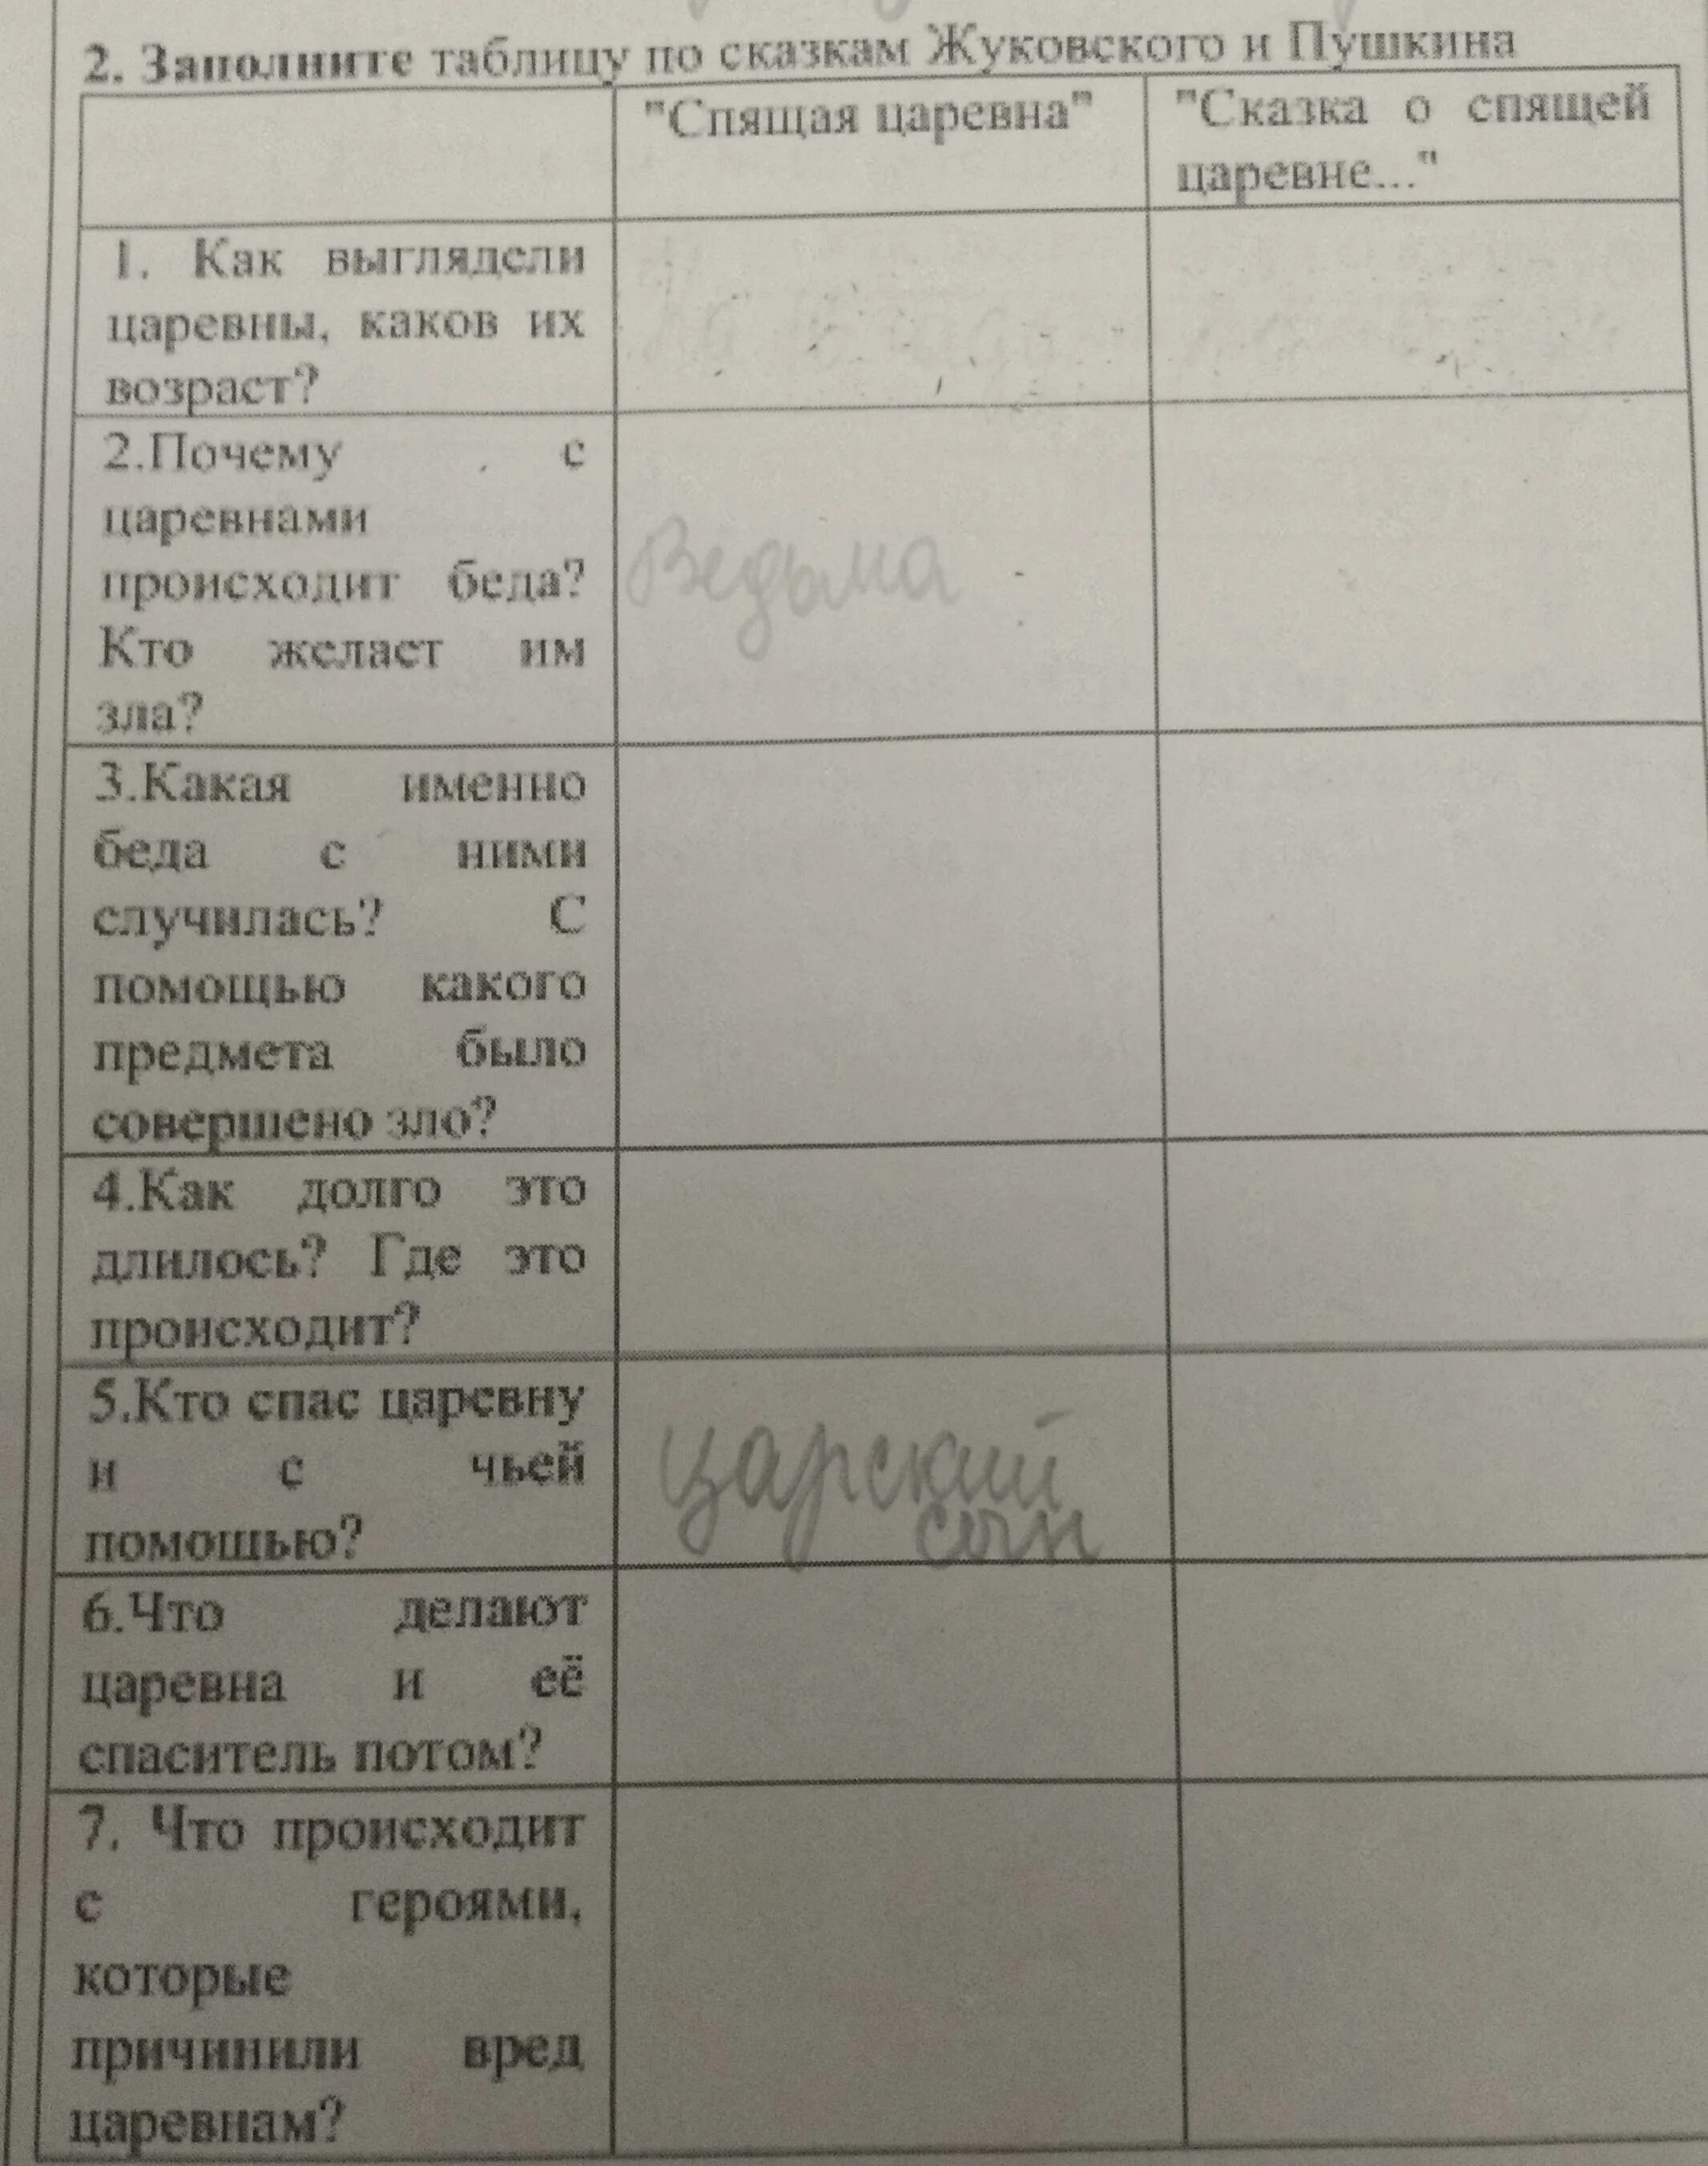 2. Заполните таблицу по сказкам Жуковского и Пушкина
"Спящая царевна"
"Сказка о спящей
царевне..."
1. Как выглядели
царевны, каков их
возраст?
2.Почему с
царевнами
происходит беда?
Кто желает им
зла?
Ведьма
3.Какая именно
беда с ними
случилась? С
помощью какого
предмета было
совершено зло?
4.Как долго это
длилось? Где это
происходит?
5.Кто спас царевну
и с чьей
помощью?
царский
сын
6.Что делают
царевна и её
спаситель потом?
7. Что происходит
с героями,
которые
причинили вред
царевнам?